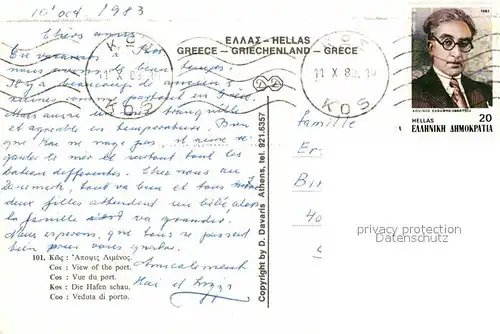 10 oct. 1983
Chers amis,
En vacances Kos
nous avons de beau temps.
Il y a beaucoup de
ruines comme partout en Grèce
mais aussi une mer tranquille
et agréable en température. Bien
que Kai ne nage pas, il aime re-
garder la mer et surtout tout les
bateau differentes. Chez nous au
Danemark, tout va bien et tous nos
deux filles attendent un bébé alors
la famille va grandir.
Nous esperons, que tous se passent
bien pour vous quatre.
Amicalement
Kai et
101. Κῶς : Ἄποψις Λιμένος.
Cos : View of the port.
Cos : Vue du port.
Kos : Die Hafen schau.
Coo : Veduta di porto.
ΕΛΛΑΣ - HELLAS
GREECE - GRIECHENLAND - GRECE
Copyright by D. Davaris Athens, tel. 921.6357
ΚΩΣ
11 X 83
KOS
ΚΩΣ
11 X 83. 14
KOS
1983
20
HELLAS
ΕΛΛΗΝΙΚΗ ΔΗΜΟΚΡΑΤΙΑ
Famille
Er
Bi
40
permission of oldthing.com